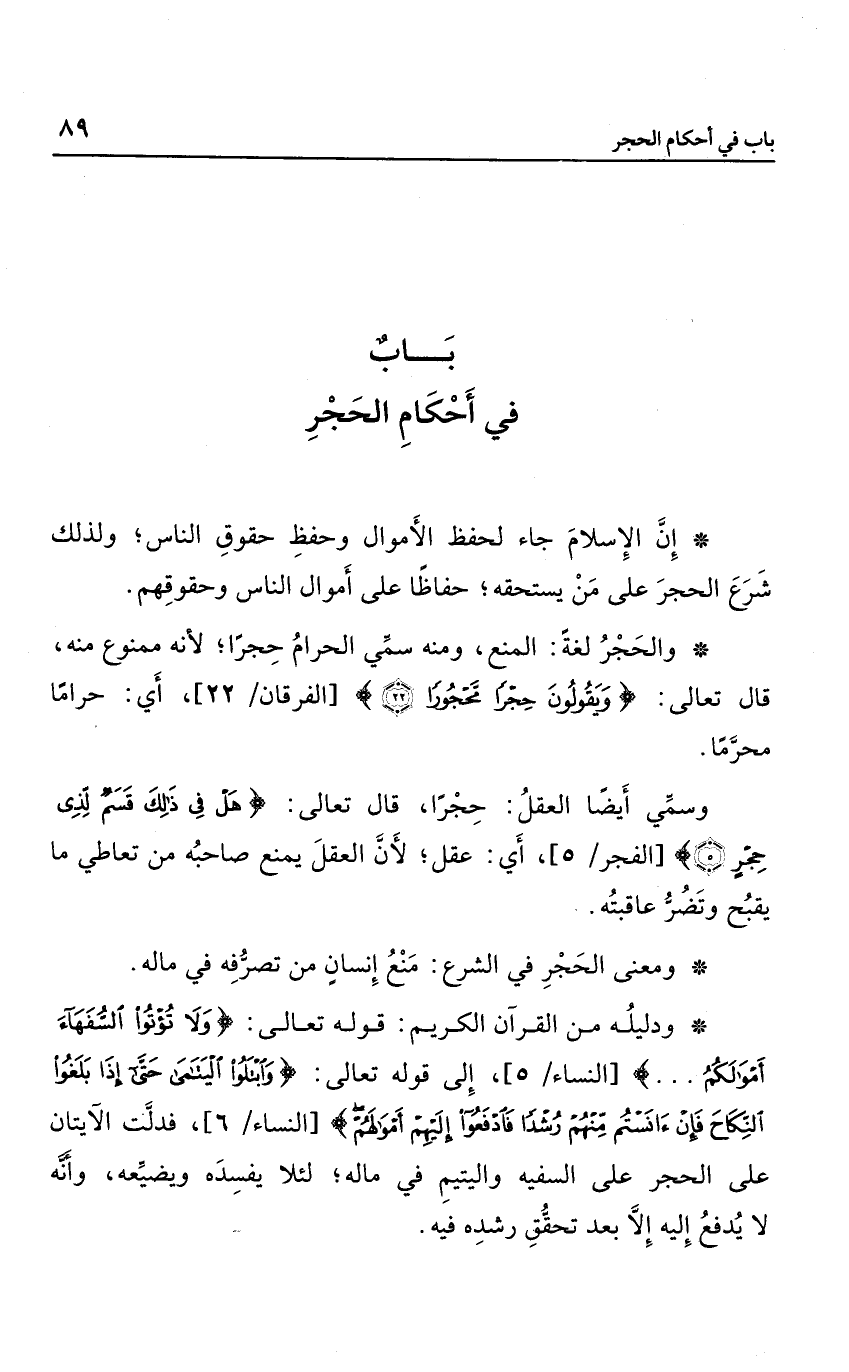 باب في أحكام الحجر ٨٩
بَـــابٌ
في أَحْكَامِ الحَجْرِ
* إِنَّ الإِسلامَ جاء لحفظ الأَموال وحفظِ حقوقِ الناس؛ ولذلك
شَرَعَ الحجرَ على مَنْ يستحقه؛ حفاظًا على أَموال الناس وحقوقِهم.
* والحَجْرُ لغةً: المنع، ومنه سمِّي الحرامُ حِجرًا؛ لأنه ممنوع منه،
قال تعالى: ﴿ وَيَقُولُونَ حِجْرًا مَّحْجُورًا ٢٢ ﴾ [الفرقان/ ٢٢]، أَي: حرامًا
محرَّمًا.
وسمِّي أَيضًا العقلُ: حِجْرًا، قال تعالى: ﴿ هَلْ فِى ذَٰلِكَ قَسَمٌ لِّذِى
حِجْرٍ ٥ ﴾ [الفجر/ ٥]، أَي: عقل؛ لأَنَّ العقلَ يمنع صاحبُه من تعاطي ما
يقبُح وتَضُرُّ عاقبتُه.
* ومعنى الحَجْرِ في الشرع: مَنْعُ إِنسانٍ من تصرُّفِه في ماله.
* ودليلُـه مـن القـرآن الكـريـم: قـولـه تعـالـى: ﴿ وَلَا تُؤْتُوا۟ ٱلسُّفَهَآءَ
أَمْوَٰلَكُمُ ... ﴾ [النساء/ ٥]، إِلى قوله تعالى: ﴿ وَٱبْتَلُوا۟ ٱلْيَتَٰمَىٰ حَتَّىٰٓ إِذَا بَلَغُوا۟
ٱلنِّكَاحَ فَإِنْ ءَانَسْتُم مِّنْهُمْ رُشْدًا فَٱدْفَعُوٓا۟ إِلَيْهِمْ أَمْوَٰلَهُمْ ۖ ﴾ [النساء/ ٦]، فدلَّت الآيتان
على الحجر على السفيه واليتيمِ في ماله؛ لئلا يفسِدَه ويضيِّعه، وأَنَّه
لا يُدفعُ إِليه إِلاَّ بعد تحقُّقِ رشدِه فيه.